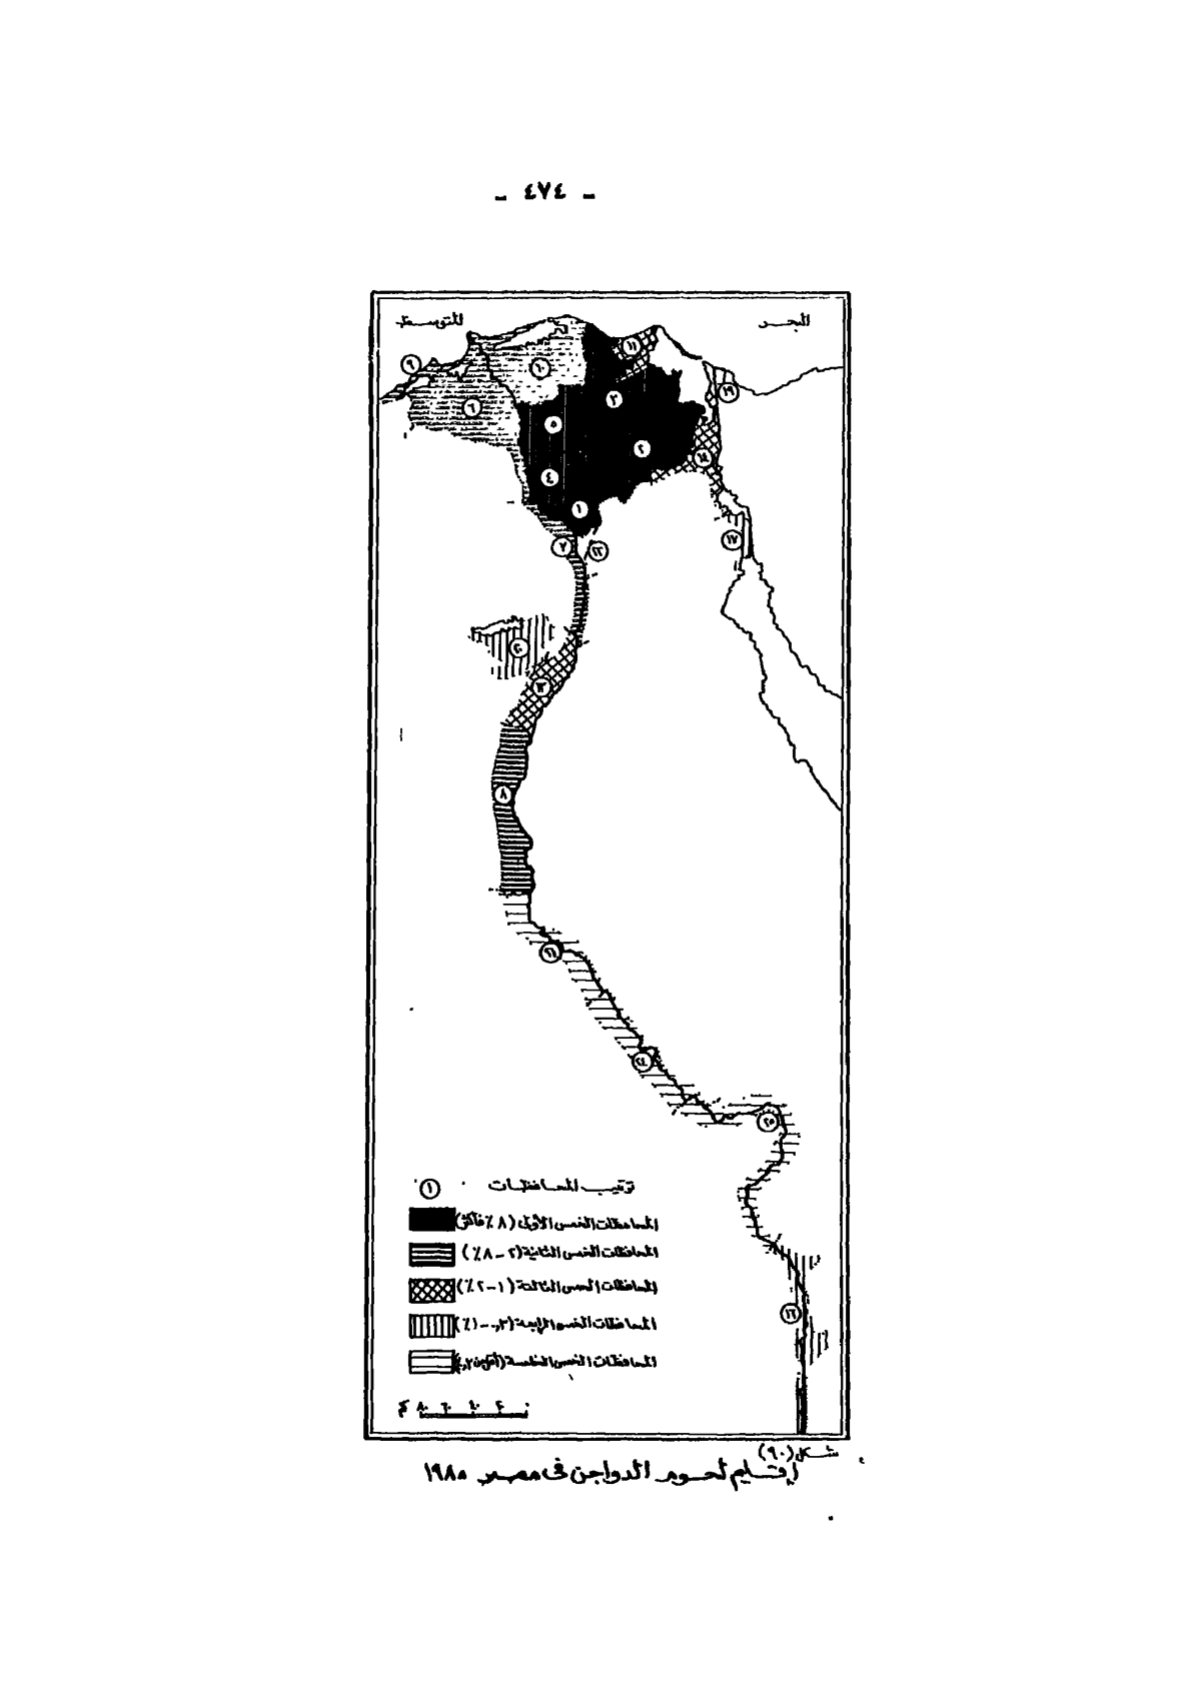 - ٤٧٤ -
البحر
المتوسط
١١
٩
١٠
١٩
٦
٣
٥
٢
٤
١
٧
١٢
١٧
١٣
٨
١ ترتيب المحافظات
المحافظات الخمس الأولى (٨٪ فأكثر)
المحافظات الخمس الثانية (٢-٨٪)
المحافظات الخمس الثالثة (١-٢٪)
المحافظات الخمس الرابعة
المحافظات الخمس الخامسة
شكل (٩٠)
إقليم لحوم الدواجن فى مصر ١٩٨٥